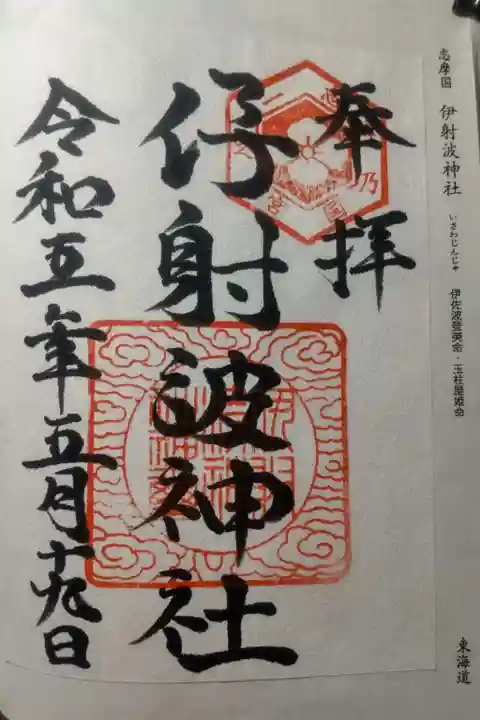 志摩国 伊射波神社
いさわじんじゃ
伊佐波登美命・玉柱屋姫命
東海道
奉拝
伊射波神社
令和五年五月十九日